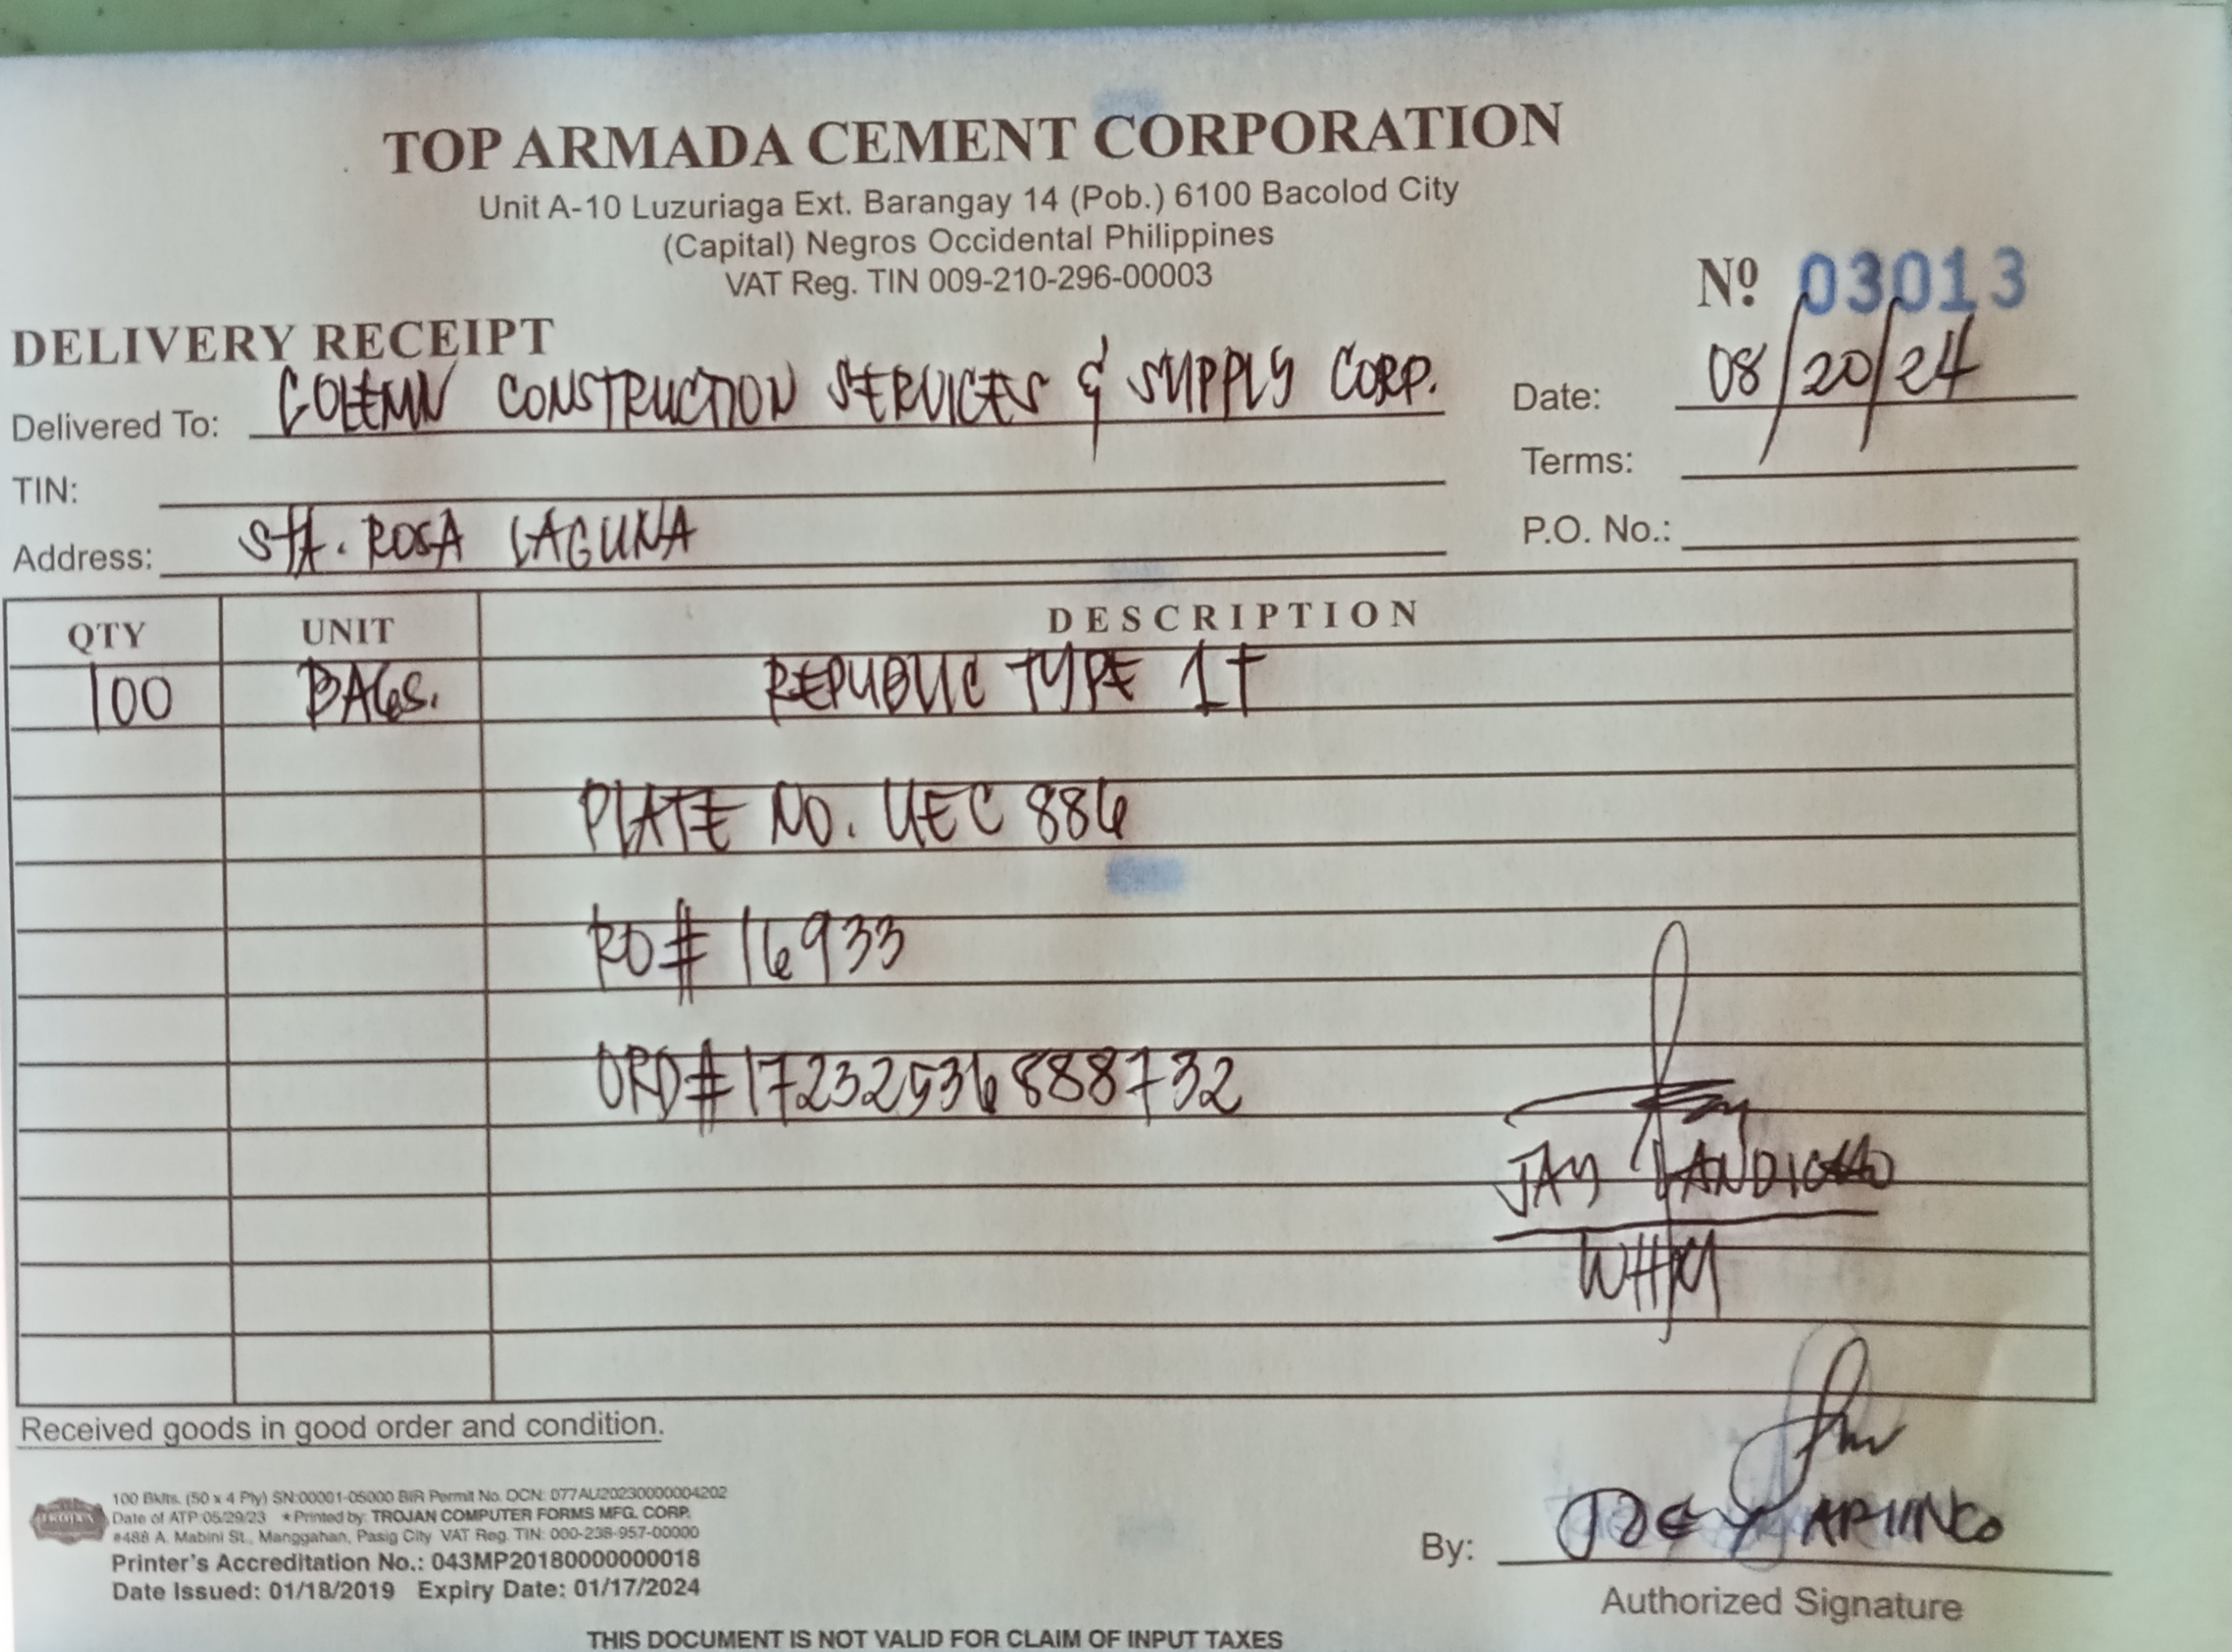 TOP ARMADA CEMENT CORPORATION
Unit A-10 Luzuriaga Ext. Barangay 14 (Pob.) 6100 Bacolod City
(Capital) Negros Occidental Philippines
VAT Reg. TIN 009-210-296-00003
Nº 03013
DELIVERY RECEIPT
Delivered To: COLEMN CONSTRUCTION SERVICES & SUPPLY CORP.
Date: 08/20/24
TIN:
Terms:
Address: STA. ROSA LAGUNA
P.O. No.:
QTY UNIT DESCRIPTION
100 BAGS. REPUBLIC TYPE 1T
PLATE NO. UEC 886
RO# 16933
ORD# 17232536888732
JAY
WHM
Received goods in good order and condition.
100 Bklts. (50 x 4 Ply) SN:00001-05000 BIR Permit No. OCN: 077AU20230000004202
Date of ATP 05/29/23 *Printed by: TROJAN COMPUTER FORMS MFG. CORP.
#488 A. Mabini St., Manggahan, Pasig City VAT Reg. TIN: 000-238-957-00000
Printer's Accreditation No.: 043MP20180000000018
Date Issued: 01/18/2019 Expiry Date: 01/17/2024
TROJAN
By: JOEY
Authorized Signature
THIS DOCUMENT IS NOT VALID FOR CLAIM OF INPUT TAXES